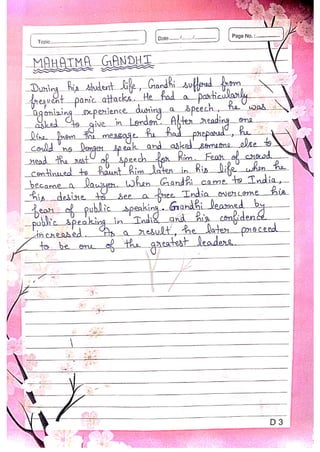 Topic
Date
Page No.:
MAHATMA GANDHI
During his student life, Gandhi suffered from
frequent panic attacks. He had a particularly
agonising experience during a speech, he was
asked to give in London. After reading one
line from the message he had prepared, he
could no longer speak and asked someone else to
read the rest of speech for him. Fear of crowd
continued to haunt him later in his life when he
became a lawyer. When Gandhi came to India,
his desire to see a free India overcome his
fear of public speaking. Gandhi learned by
public speaking in India and his confidence
increased. As a result, he later proceed
to be one of the greatest leaders.
D 3